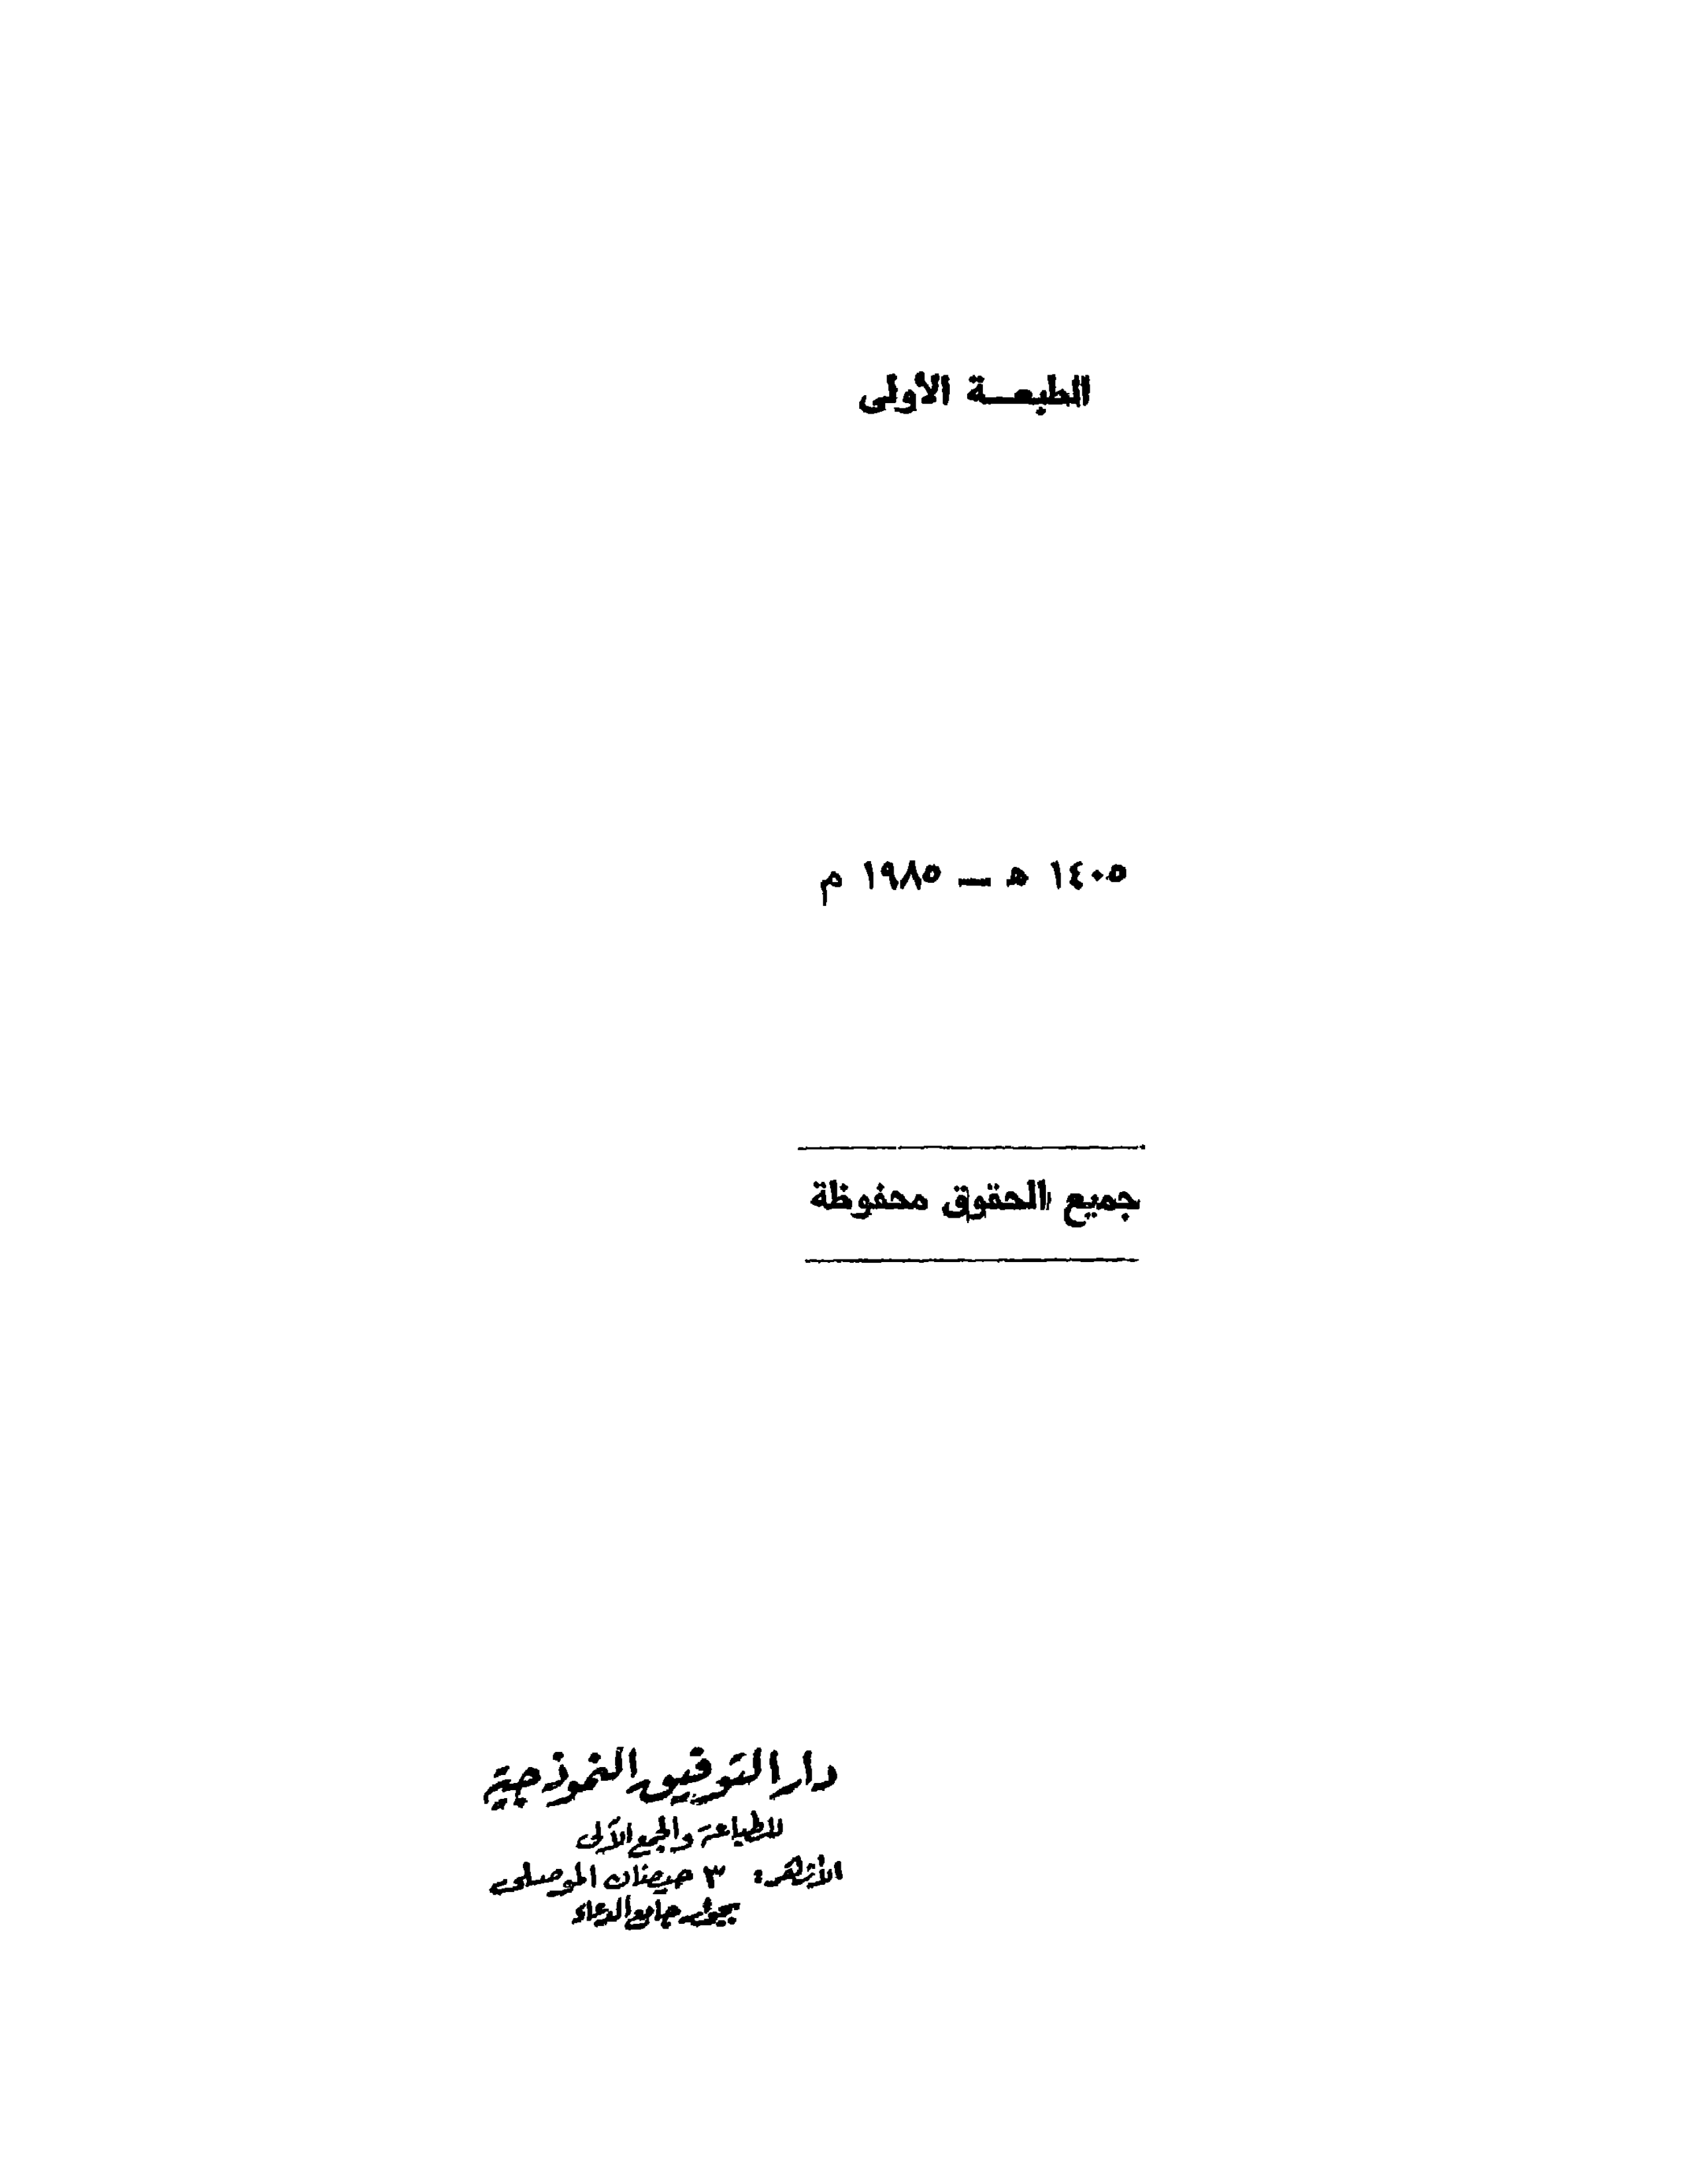 الطبعة الأولى
١٤٠٥ هـ — ١٩٨٥ م
جميع الحقوق محفوظة
دار التوفيق النموذجية
للطباعة والجمع الآلى
الأزهر: ٣ حيضان الموصلى
بجوار جامع الدعاء